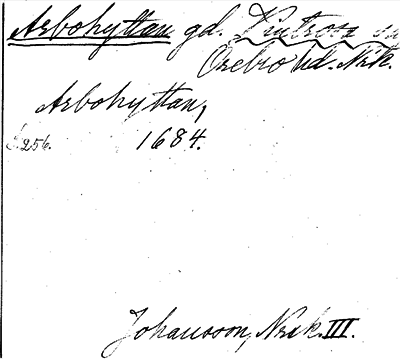 Arbohyttan gd. Vintrosa sn
Örebro hd. Nrk.
Arbohyttan,
S. 256. 1684.
Johansson, Nrik. III.